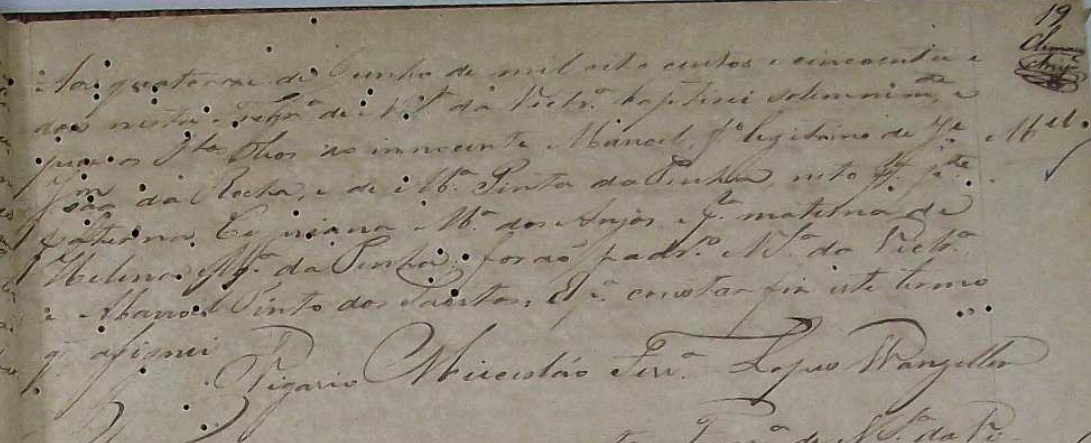 19
Aos quatorze de Junho de mil oito centos e cincoenta e
dois nesta Fregª de N. Sª da Victrª baptizei solemnimte, e
puz os Stos Oleos ao innocente Manoel, fº legitimo de Jº Mel
da Rocha, e de Mª Pinta da Penha, neto pr pte
paterna Cypriana Mª dos Anjos e pª materna de
Helena Mª da Penha: forão padrº N. Sª da Victrª
e Manoel Pinto dos Santos, E pª constar fiz este termo
q' assignei
Vigario Misecsláo Ferrª Lopes Wanzeller
Fregª de N. Sª da Vi